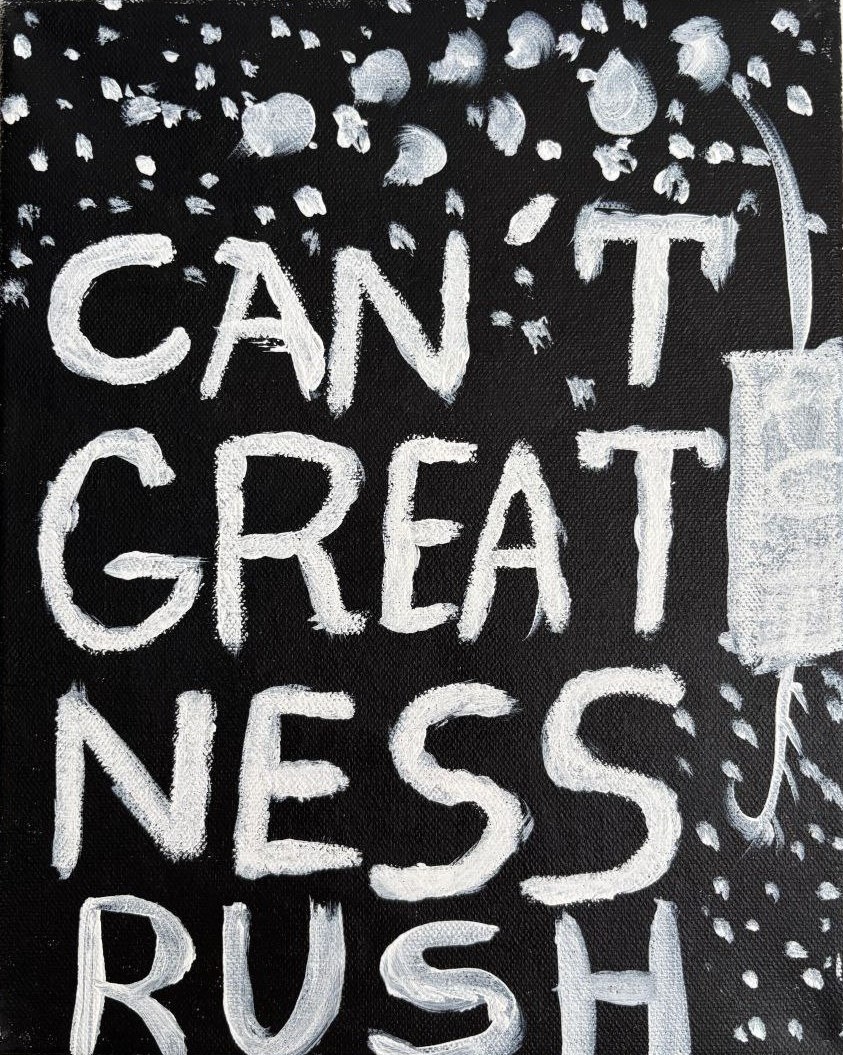 CAN'T
GREAT
NESS
RUSH